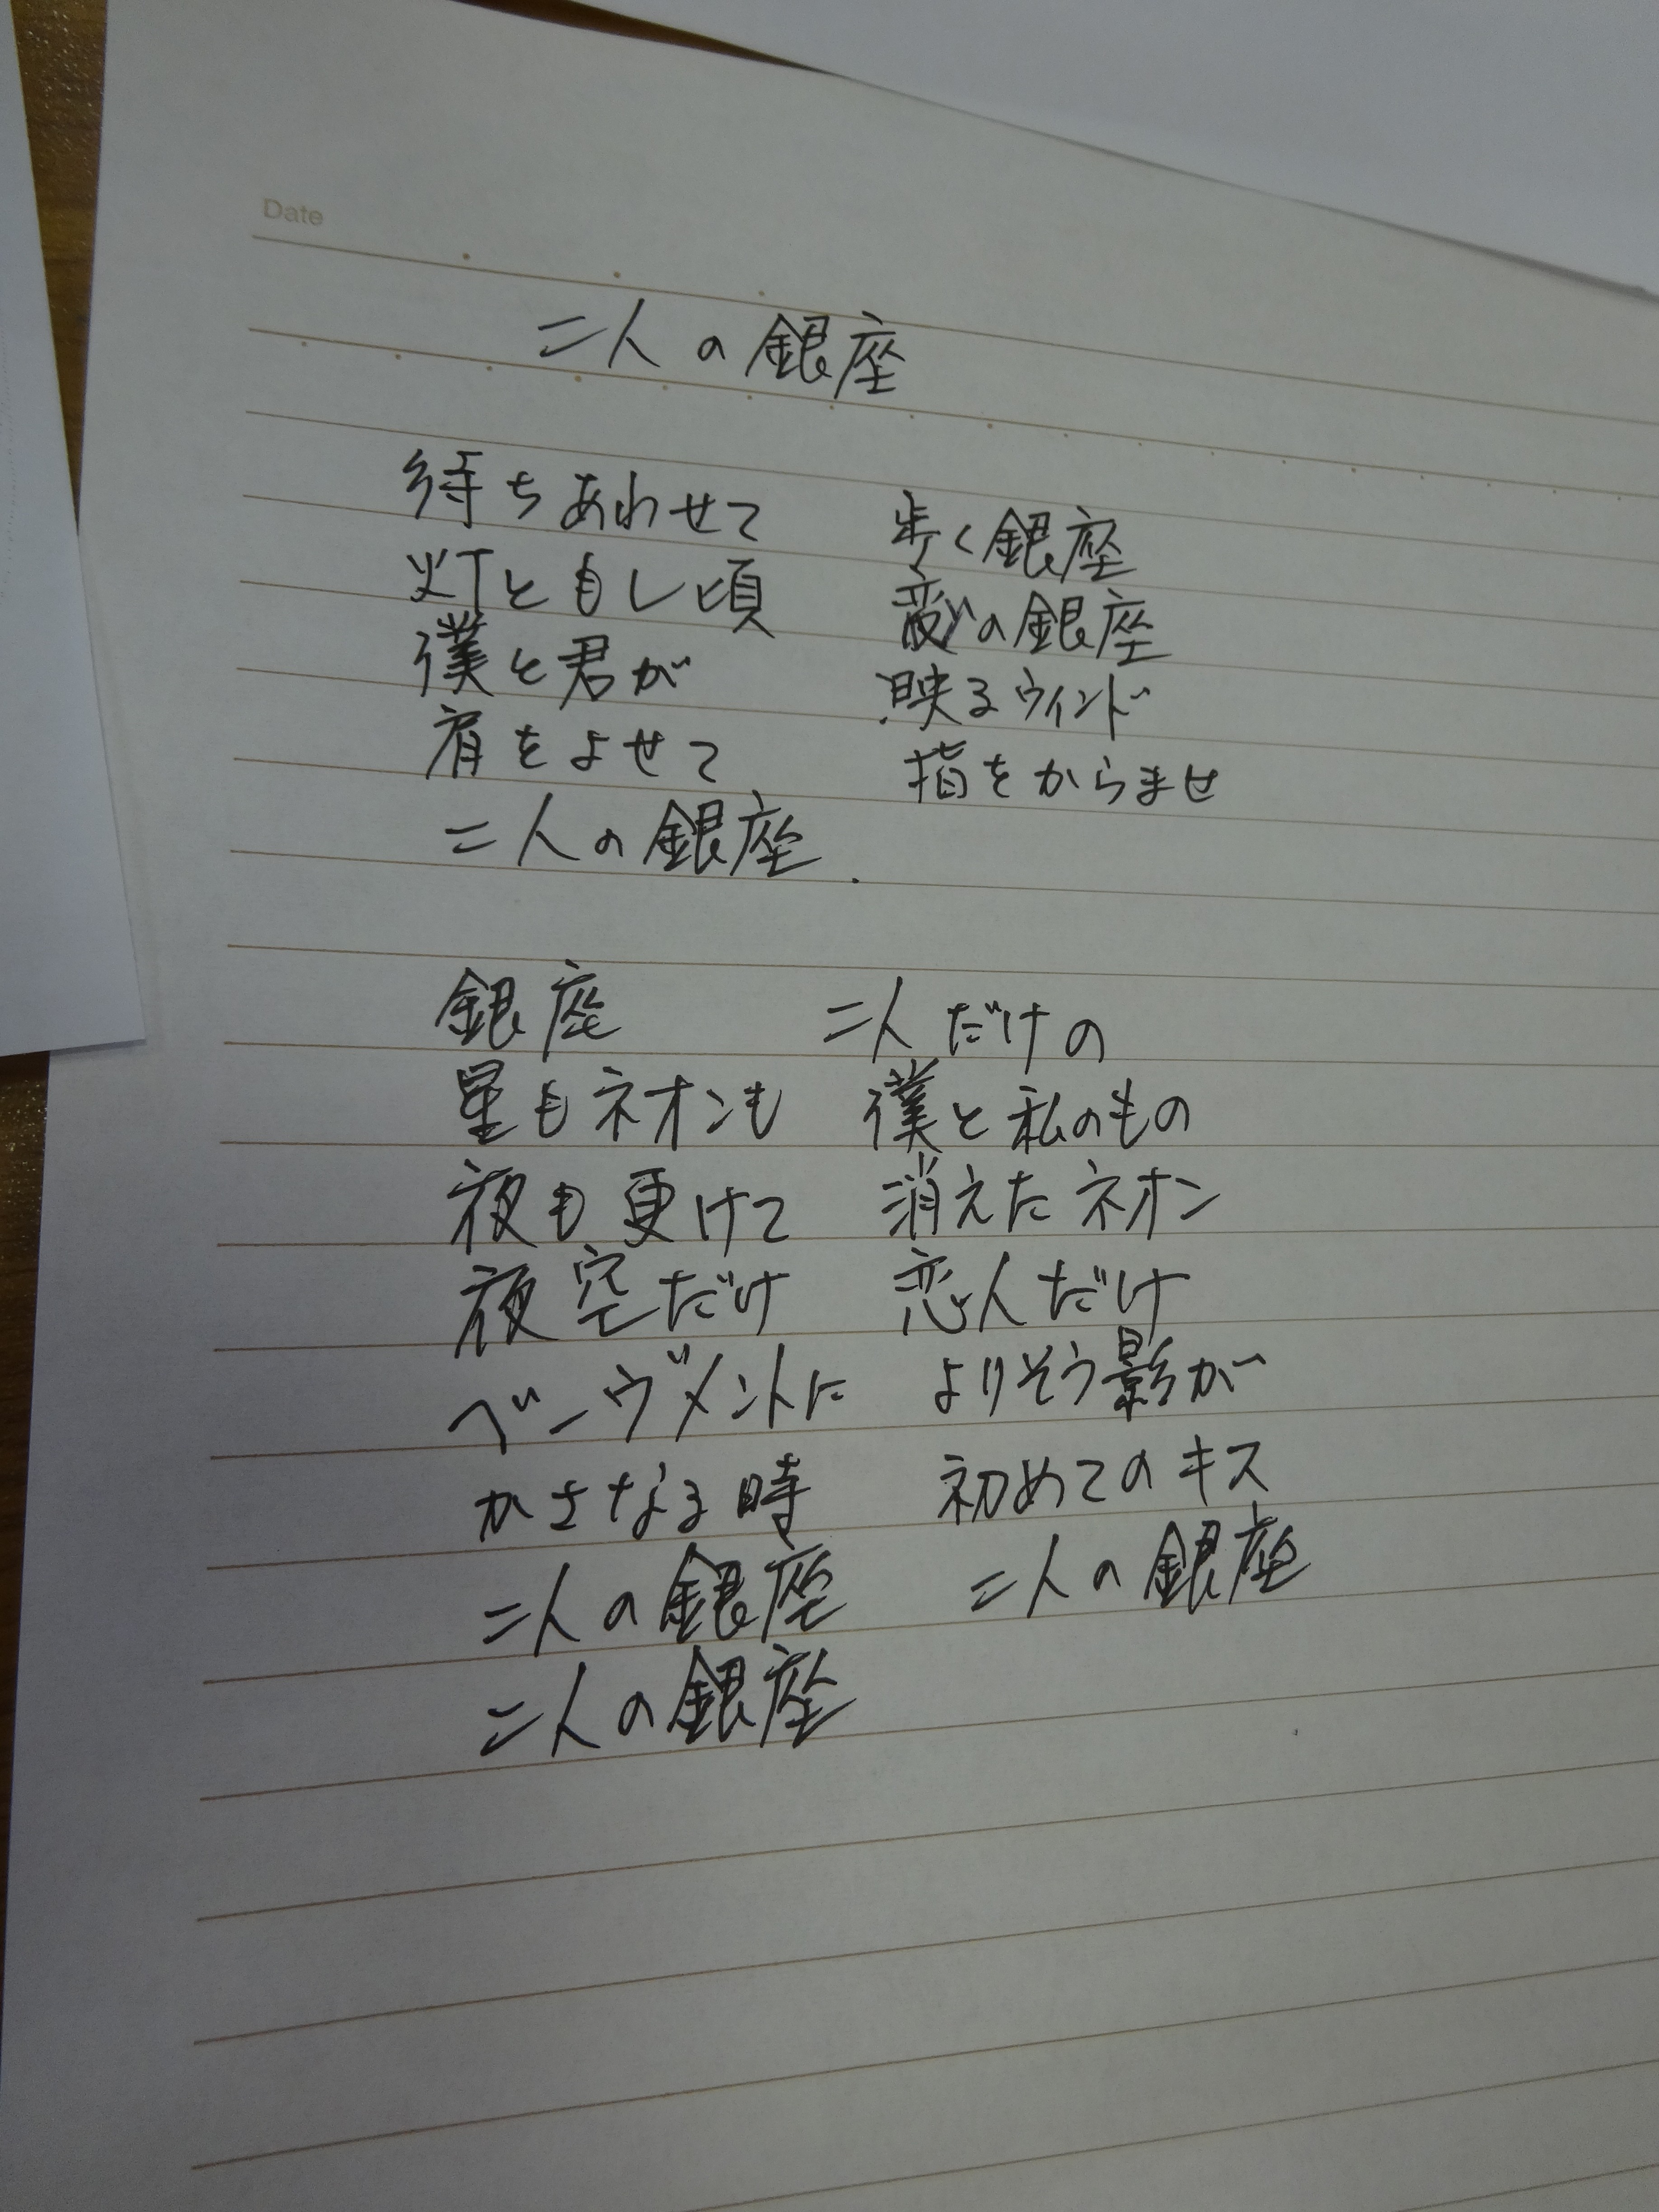 Date
二人の銀座
待ちあわせて 歩く銀座
灯ともし頃 恋の銀座
僕と君が 映るウィンド
肩をよせて 指をからませ
二人の銀座
銀座 二人だけの
星もネオンも 僕と私のもの
夜も更けて 消えたネオン
夜空だけ 恋人だけ
ベーヴメントに よりそう影が
かさなる時 初めてのキス
二人の銀座 二人の銀座
二人の銀座